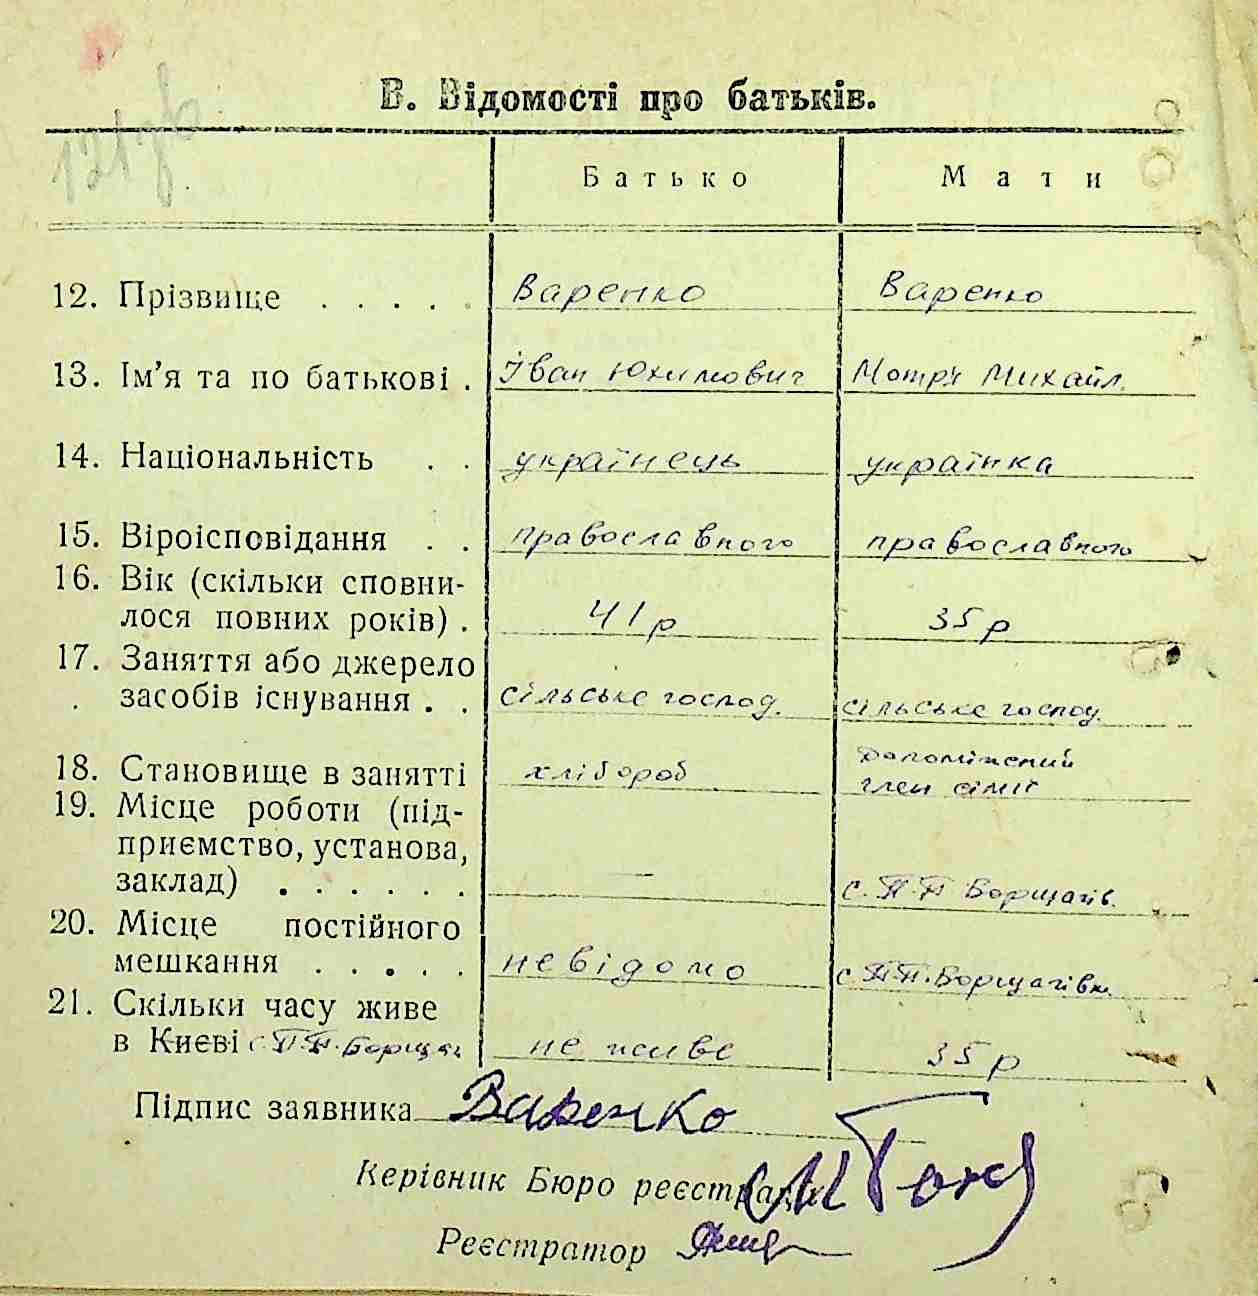 В. Відомості про батьків.
Батько Мати
12. Прізвище . . . . . Варенко Варенко
13. Ім’я та по батькові . Іван Юхимович Мотря Михайл.
14. Національність . . українець українка
15. Віроісповідання . . православного православного
16. Вік (скільки сповни-
лося повних років) . 41 р 35 р
17. Заняття або джерело
засобів існування . . сільське господ. сільське господ.
18. Становище в занятті хлібороб допоміжений
член сімії
19. Місце роботи (під-
приємство, установа,
заклад) . . . . . . — с. П-П Борщагів.
20. Місце постійного
мешкання . . . . . невідомо с П-П. Борщагівки
21. Скільки часу живе
в Києві с П-П. Борщаг. не живе 35 р
Підпис заявника Варенко
Керівник Бюро реєстрації
Реєстратор